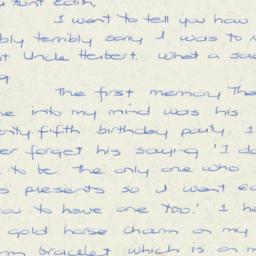 Aunt Edith,
I want to tell you how
terribly sorry I was to
Uncle Herbert. What a
The first memory
into my mind was his
fifth birthday party. I
forget his saying 'I do
to be the only one who
presents so I want
to have one too.' I
gold horse charm on my
bracelet which is on